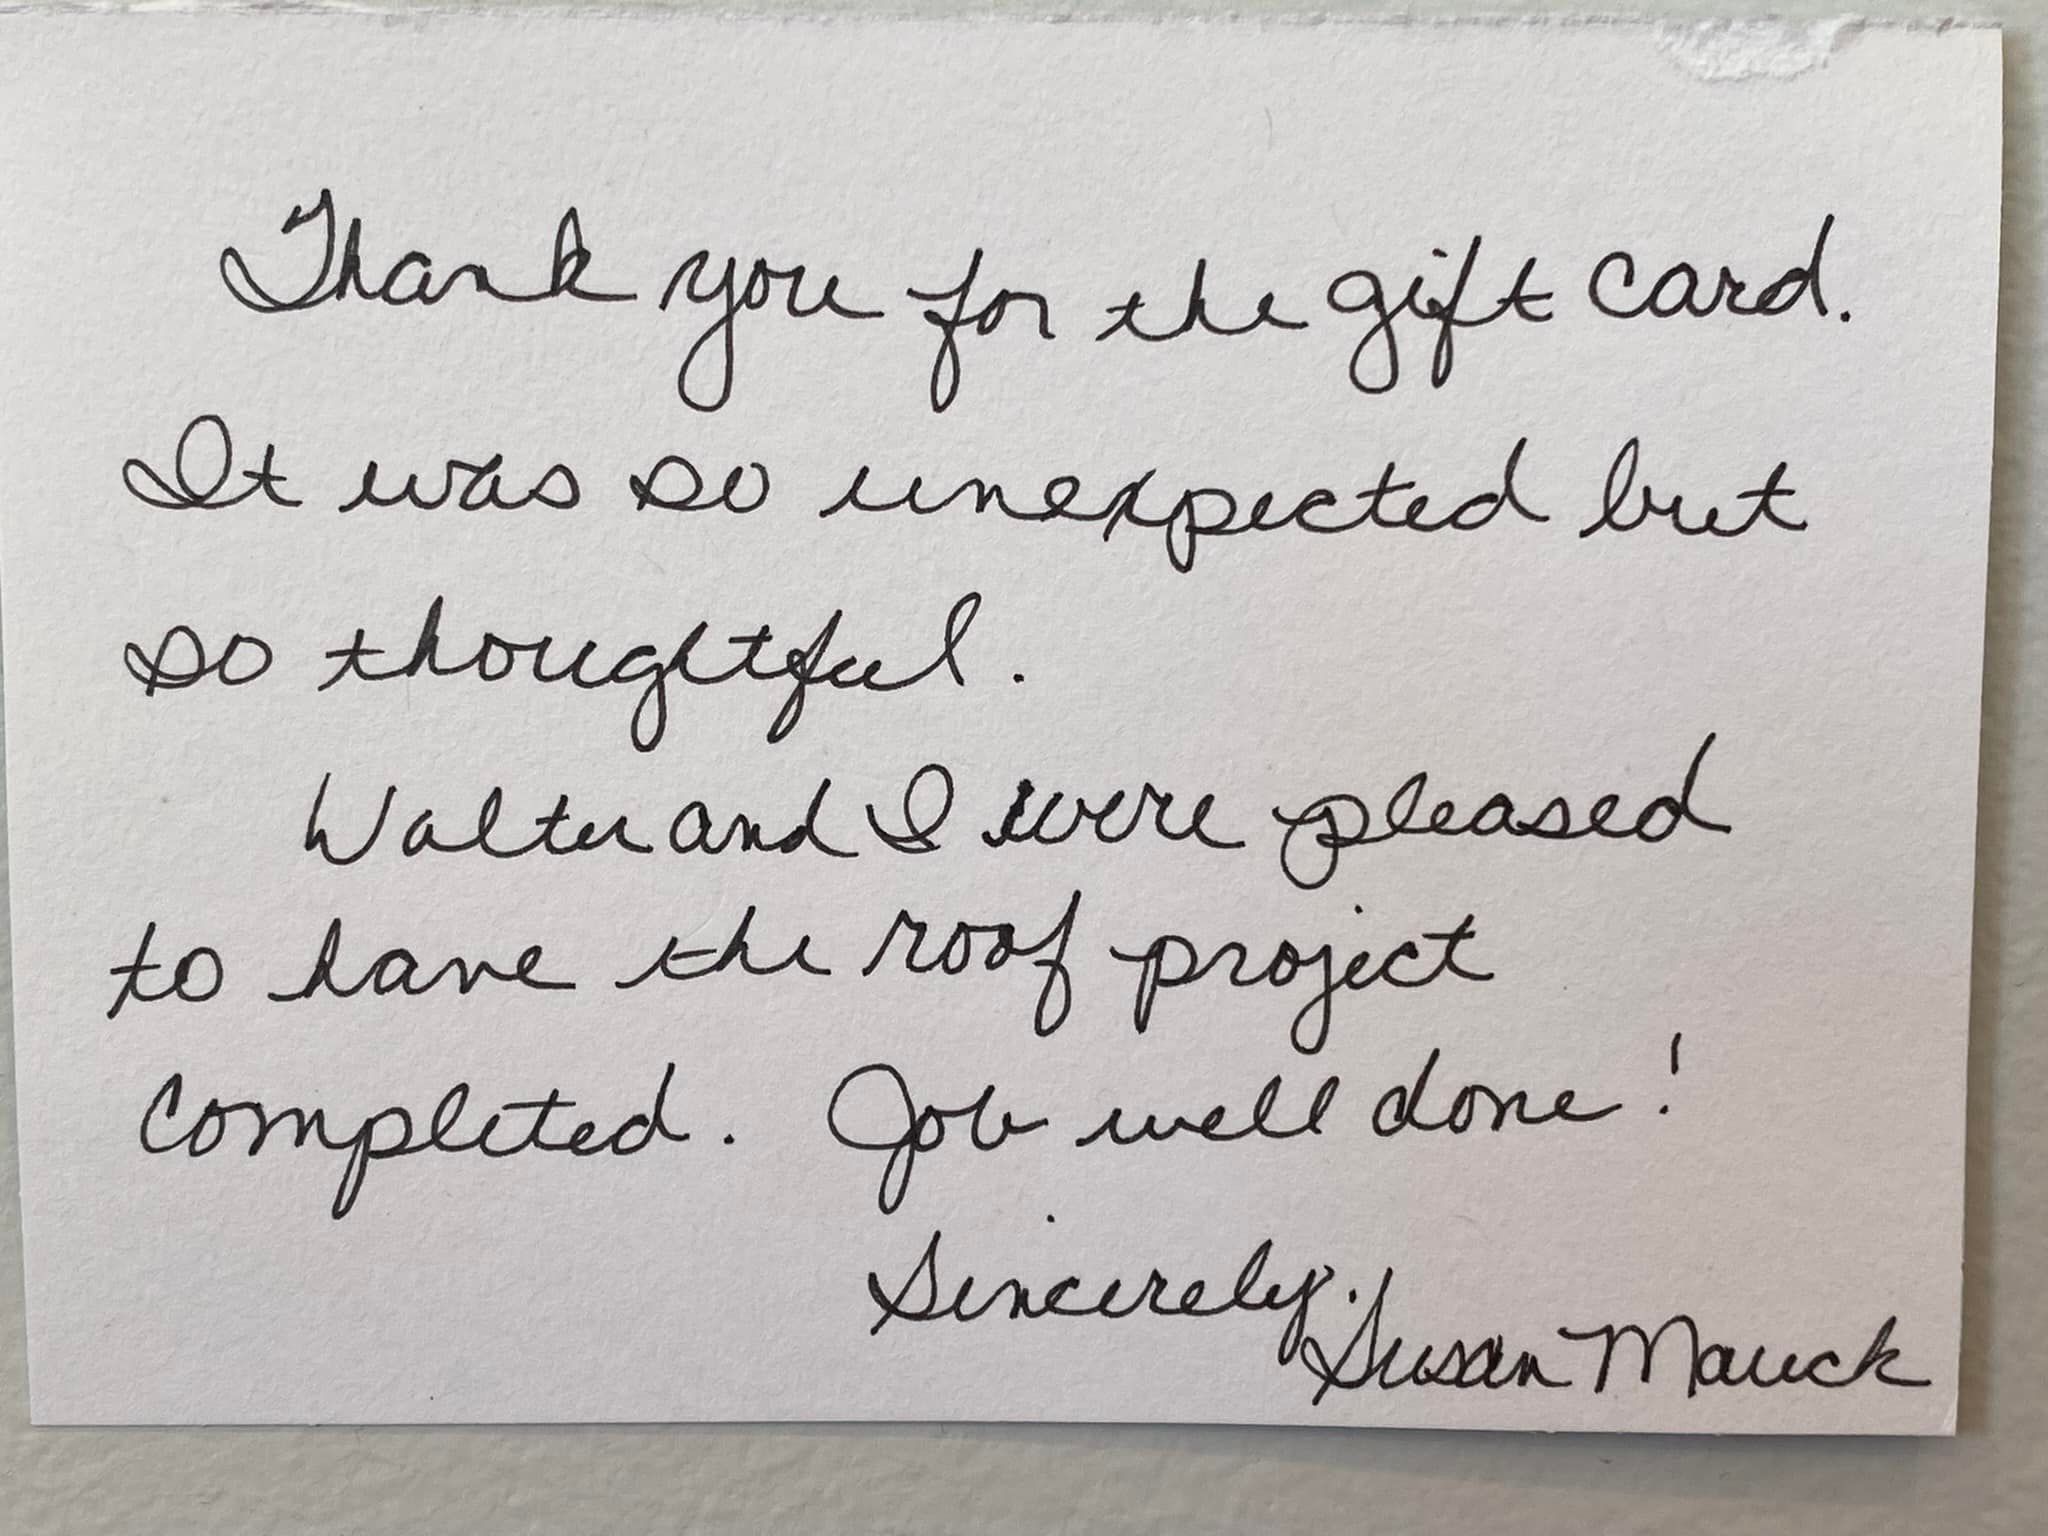 Thank you for the gift card.
It was so unexpected but
so thoughtful.
Walter and I were pleased
to have the roof project
completed. Job well done!
Sincerely,
Susan Mauck